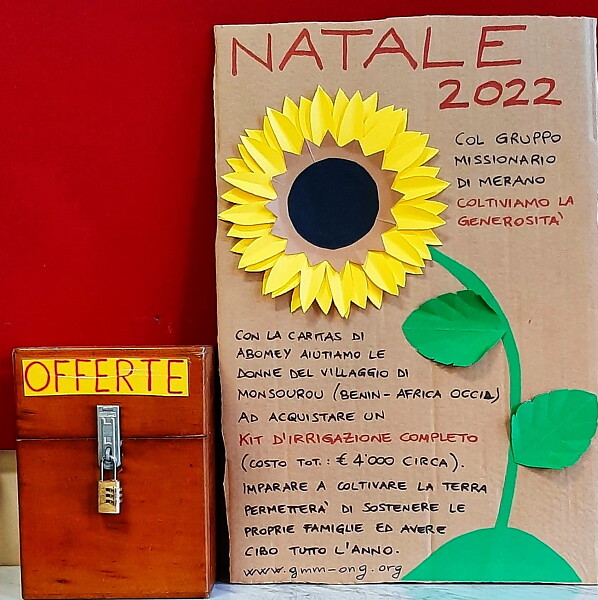 NATALE
2022
COL GRUPPO
MISSIONARIO
DI MERANO
COLTIVIAMO LA
GENEROSITA'
CON LA CARITAS DI
ABOMEY AIUTIAMO LE
DONNE DEL VILLAGGIO DI
MONSOUROU (BENIN - AFRICA OCCID)
AD ACQUISTARE UN
KIT D'IRRIGAZIONE COMPLETO
(COSTO TOT.: € 4'000 CIRCA).
IMPARARE A COLTIVARE LA TERRA
PERMETTERA' DI SOSTENERE LE
PROPRIE FAMIGLIE ED AVERE
CIBO TUTTO L'ANNO.
www.gmm-ong.org
OFFERTE